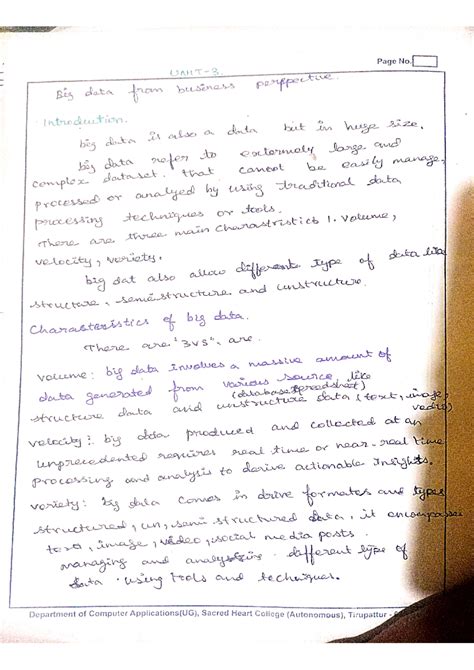 Page No.
UNIT-3.
Big data from business perspective.
Introduction.
big data is also a data but in huge size.
big data refer to extormely large and
complex dataset. that cannot be easily manage,
processed or analyed by using traditional data
processing techniques or tools.
There are three main charastristics 1. volume,
velocity, variety.
big dat also allow different type of data like
structure, semistructure and unstructure.
Charasteristics of big data.
There are "3vs", are.
volume: big data involves a massive amount of
data generated from various source, like
(database spreedsheet)
structure data and unstructure data (text, image,
vedio)
velocity: big data produced and collected at an
unprecedented requires real time or near-real time
processing and analysis to derive actionable insights.
variety: big data comes in drive formates and types
structured, un, semi structured data, it encompasses
text, image, video, social media posts.
managing and analysizing different type of
data using tools and techniques.
Department of Computer Applications(UG), Sacred Heart College (Autonomous), Tirupattur -